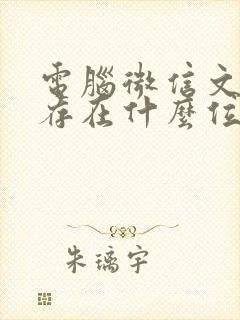 電腦微信文
存在什麼位
朱璃宇